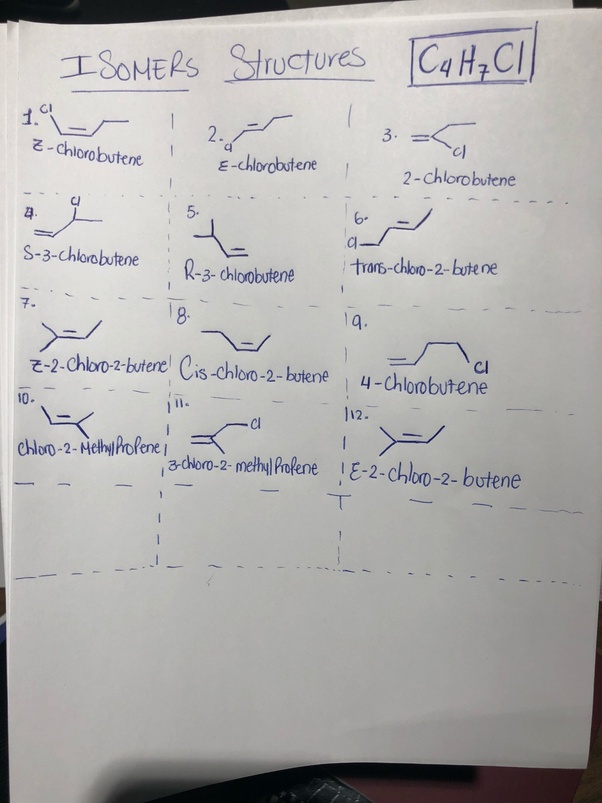 ISOMERS Structures C4H7Cl
1. Cl
Z-Chlorobutene
2. Cl
E-chlorobutene
3. Cl
2-Chlorobutene
4. Cl
S-3-chlorobutene
5.
R-3-chlorobutene
6. Cl
trans-chloro-2-butene
7.
Z-2-Chloro-2-butene
8.
Cis-chloro-2-butene
9. Cl
4-Chlorobutene
10.
Chloro-2-MethylPropene
11. Cl
3-chloro-2-methylPropene
12.
E-2-chloro-2-butene